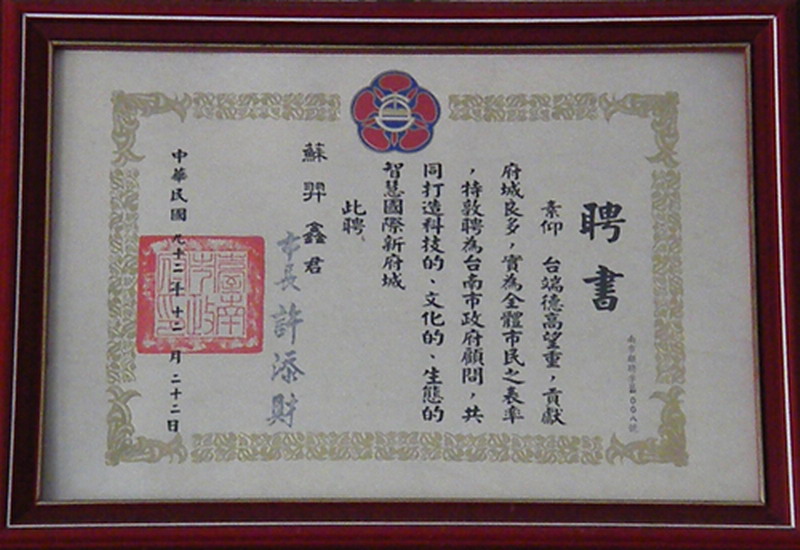 聘書
素仰　台端德高望重，貢獻
府城良多，實為全體市民之表率
，特敦聘為台南市政府顧問，共
同打造科技的、文化的、生態的
智慧國際新府城
此聘
蘇羿鑫君
市長許添財
中華民國九十二年十二月二十二日